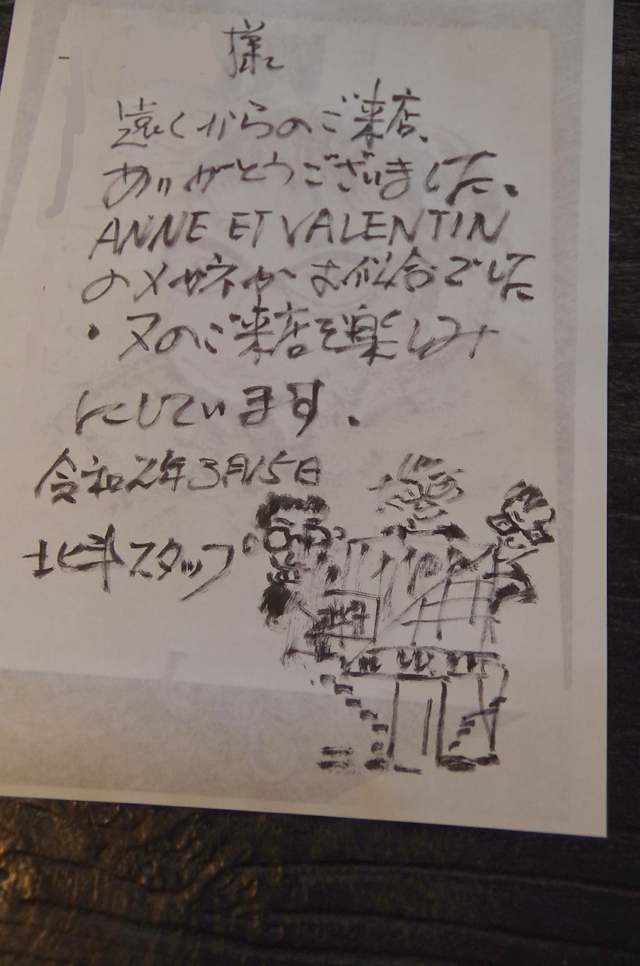 様
遠くからのご来店、
ありがとうございました。
ANNE ET VALENTIN
のメガネがお似合でした
・又のご来店を楽しみ
にしています.
令和2年3月15日
北斗スタッフ